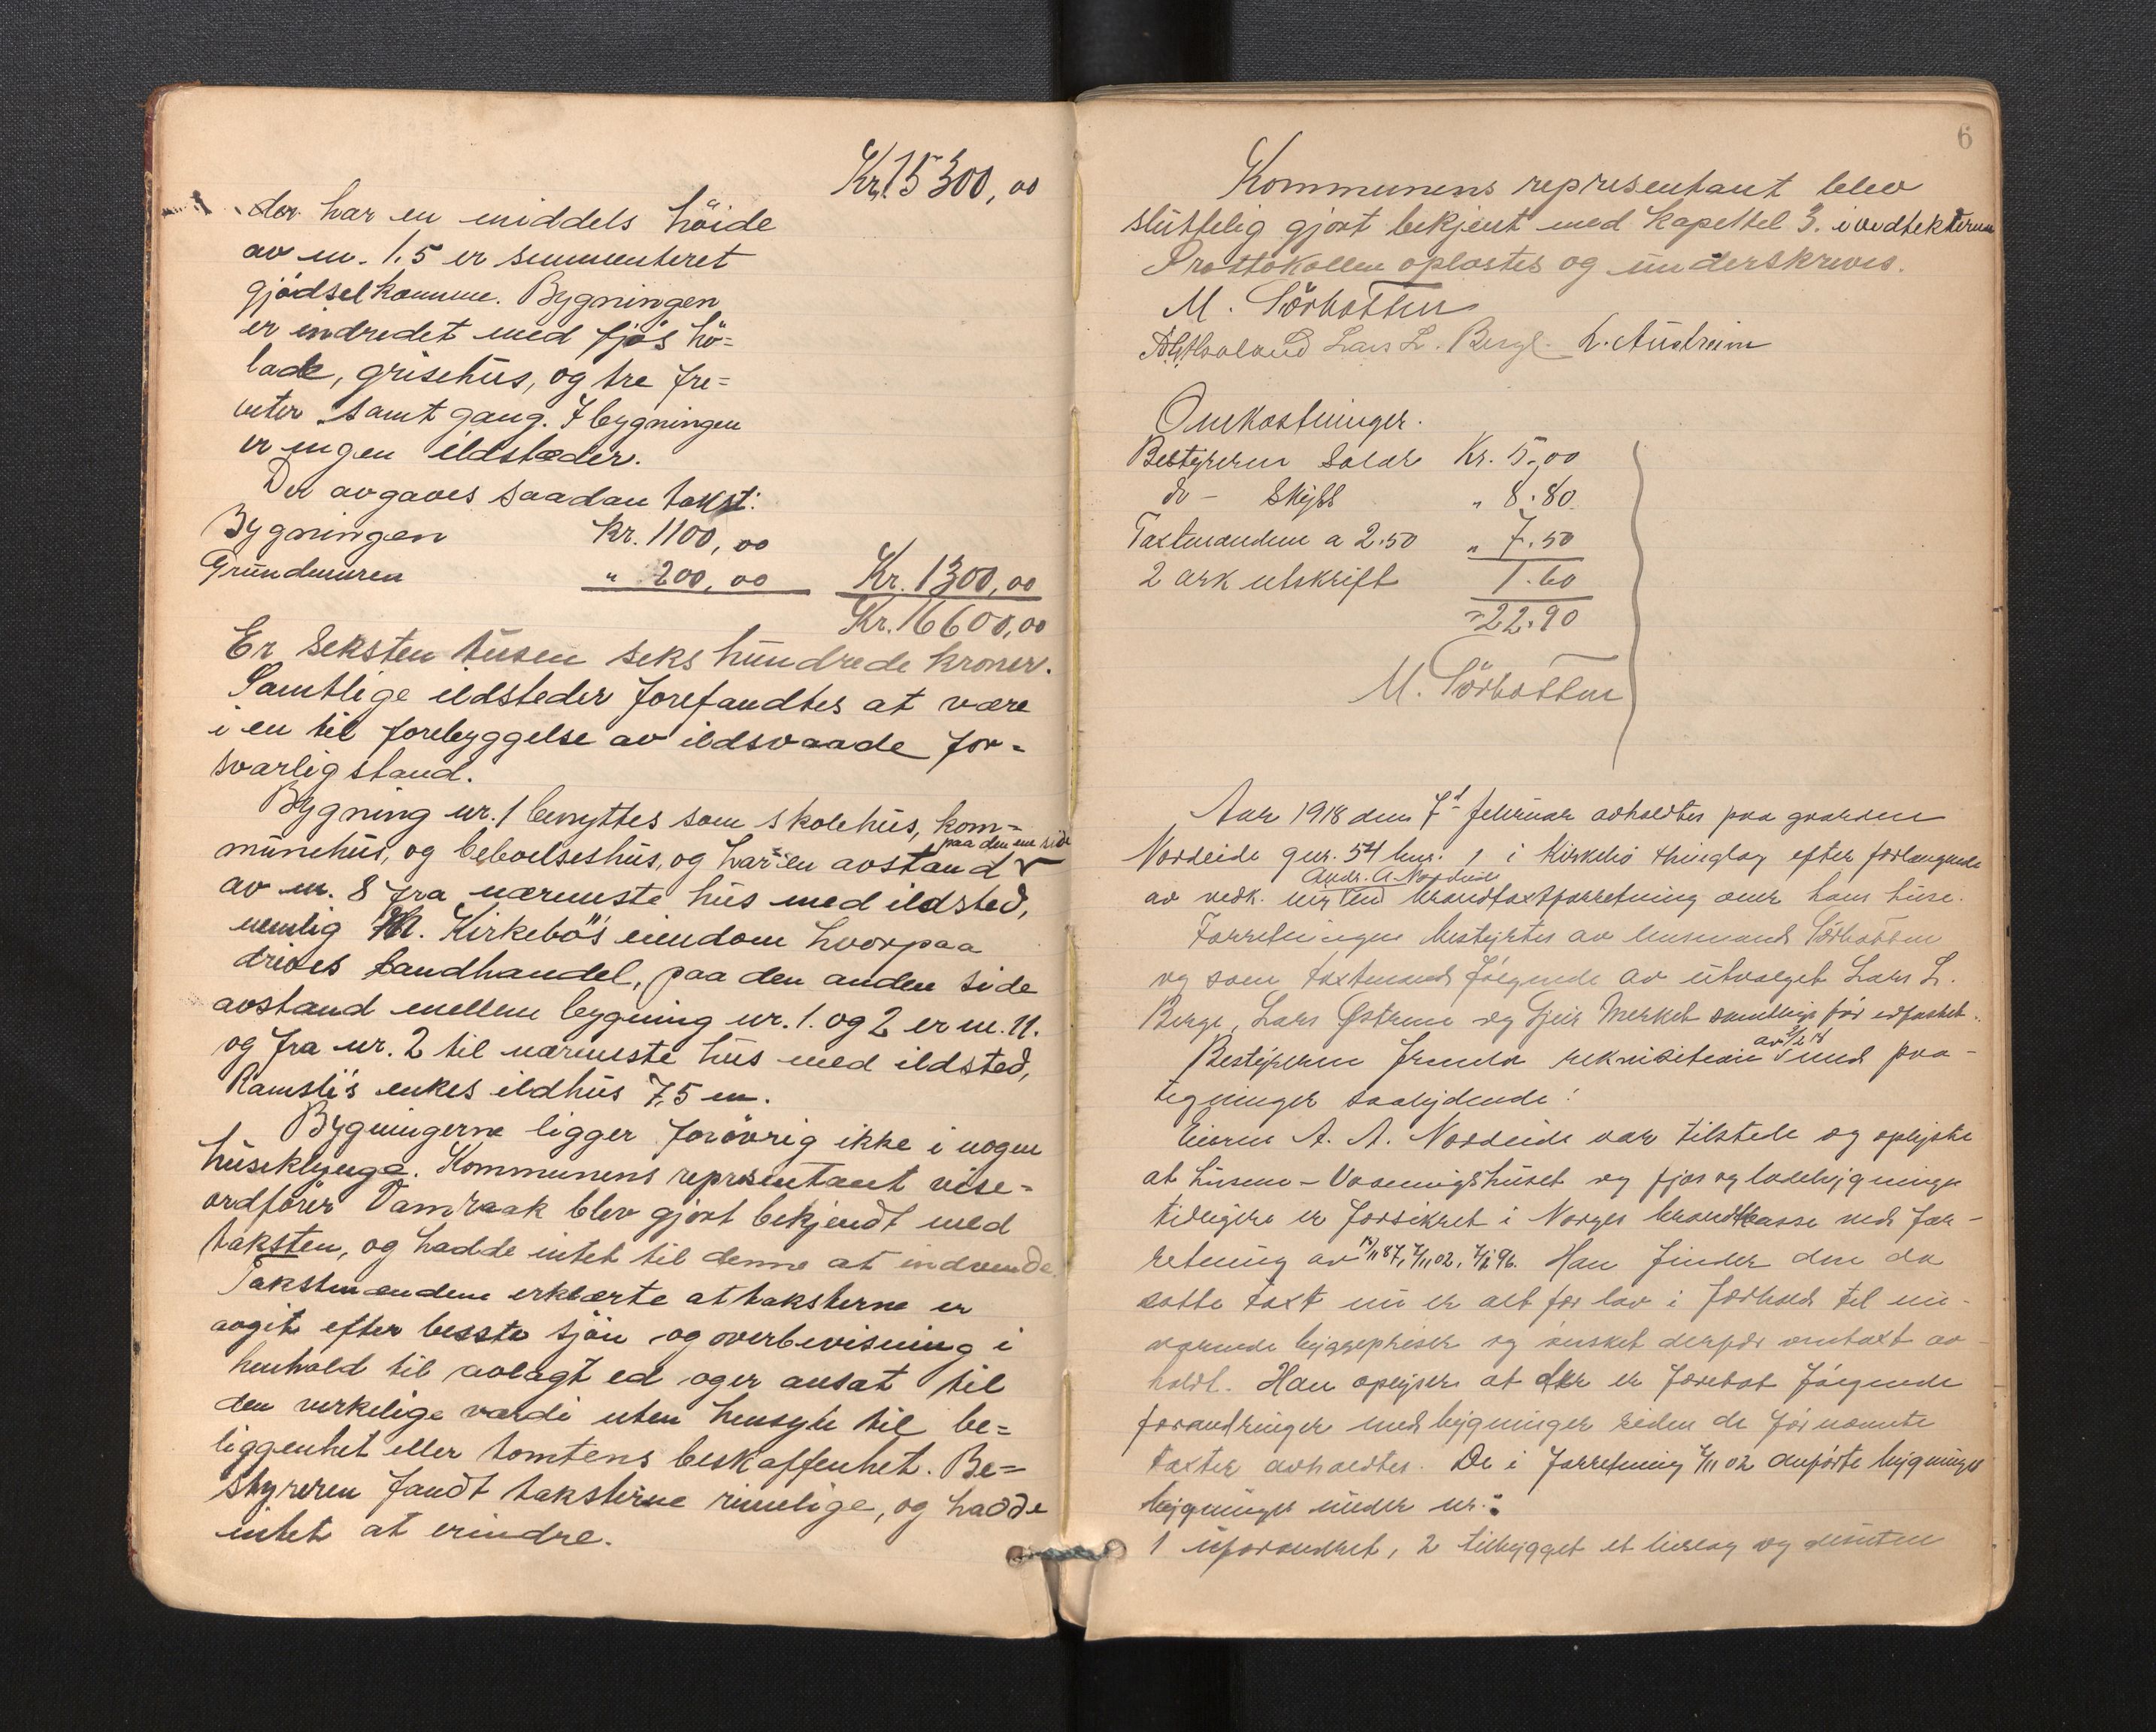 Kr. 15300,00
der har en middels höide
av m. 1.5 er sementeret
gjödselkomme. Bygningen
er indredet med fjös hö=
lade, grisehus, og tre fre=
uter samt gang. I bygningen
er ingen ildstæder.
Der avgaves saadan takst:
Bygningen Kr. 1100,00
Grundmuren " 200,00 Kr. 1300,00
Kr. 16600,00
Er seksten tusen seks hundrede kroner.
Samtlige ildsteder forefandtes at være
i en til forebyggelse av ildsvaade for=
svarlig stand.
Bygning nr. 1 benyttes som skolehus, kom=
paa den ene side
munehus, og beboelseshus, og har en avstand
av m. 8 fra nærmeste hus med ildsted,
nemlig M. Kirkebö's eiendom hvorpaa
drives landhandel, paa den anden side
avstand mellem bygning nr. 1. og 2 er m. 11.
og fra nr. 2 til nærmeste hus med ildsted,
Ramsli's enkes ildhus 7,5 m.
Bygningerne ligger forövrig ikke i nogen
huseklynge. Kommunens representant vise=
ordförer Vamraak blev gjort bekjendt med
taksten, og hadde intet til denne at indvende.
Takstmændene erklærte at taksterne er
avgit efter beste sjön og overbevisning i
henhold til avlagt ed og er ansat til
den verkelige værdi uten hensyn til be=
liggenhet eller tomtens beskaffenhet. Be=
styreren fandt taksterne rimelige, og hadde
intet at erindre.
6
Kommunens representant blev
sluttelig gjort bekjent med kapettel 3. i vedtekterne
Prottokollen oplæstes og underskreves.
M. Sörbotten
Lars L. Berge. L. Austreim
Omkostninger.
Bestyreren Salær Kr. 5,00
do - Skyss " 8.80
Taxtmændene a 2.50 " 7.50
2 ark utskrift 1.60
= 22.90
M. Sörbotten
Aar 1918 den 7d februar avholdtes paa gaarden
Nordeide gnr. 54 bnr. 1 i Kirkebö thinglag efter forlangende
Andr. A. Nordeide
av vedk. brandtaxtforretning over hans huse.
Forretningen bestyrtes av lensmand Sörbotten
og som taxtmænd fölgende av utvalget Lars L.
Berge, Lars Østreim og Geir Merket samtlige för edfæstet.
Bestyreren fremla rekvisition av med paa-
tegninger saalydende:
Eieren A. A. Nordeide var tilstede og oplyste
at husene - Vaaningshuset og fjos og ladebygningen
tidligere er forsikret i Norges brandkasse ved for-
retning av 87, 7/11 02, 96. Han finder den da
satte taxt nu er alt for lav i forhold til nu-
værende byggepriser og ønsket derfor omtaxt av-
holdt. Han oplyser at der er foretat følgende
forandringer med bygninger siden de før nævnte
taxter avholdtes. De i forretning 7/11 02 anförte bygninger
bygninger under nr.:
1 uforandret, 2 tilbygget et og desuten